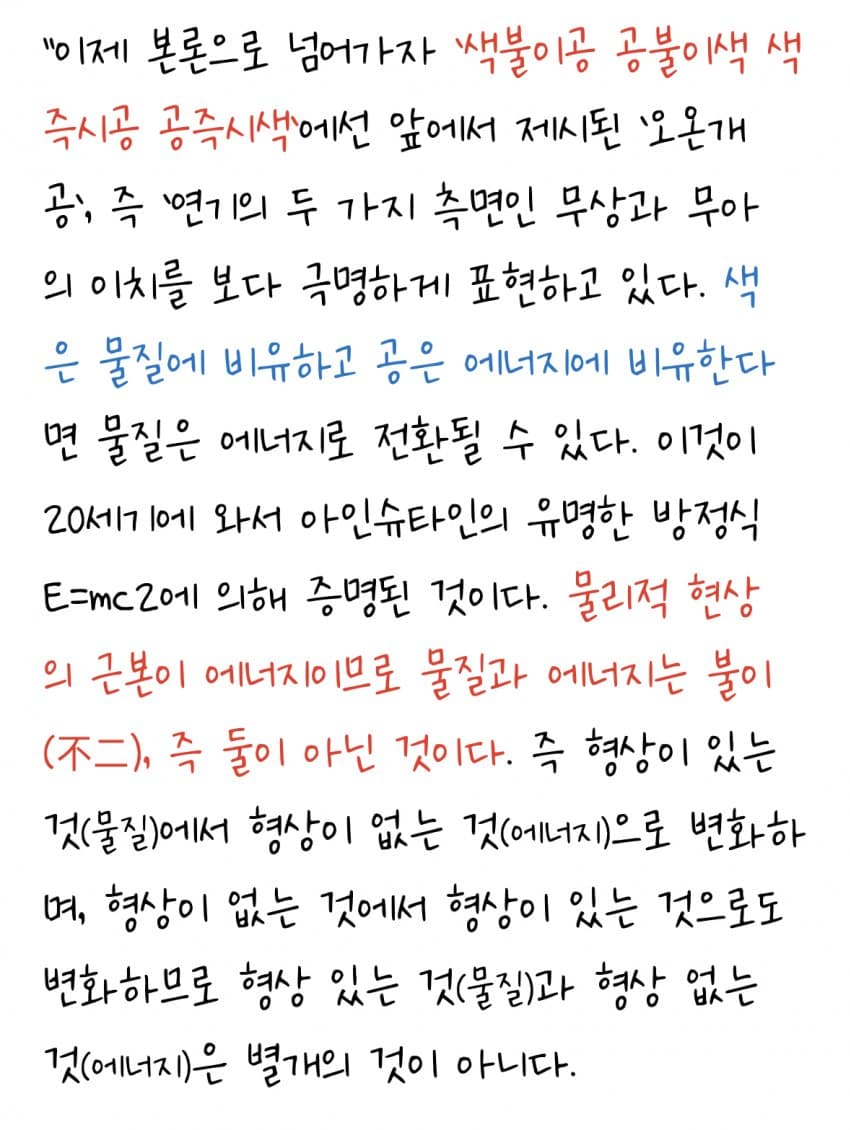 "이제 본론으로 넘어가자 '색불이공 공불이색 색
즉시공 공즉시색'에선 앞에서 제시된 '오온개
공', 즉 '연기의 두 가지 측면인 무상과 무아
의 이치를 보다 극명하게 표현하고 있다. 색
은 물질에 비유하고 공은 에너지에 비유한다
면 물질은 에너지로 전환될 수 있다. 이것이
20세기에 와서 아인슈타인의 유명한 방정식
E=mc2에 의해 증명된 것이다. 물리적 현상
의 근본이 에너지이므로 물질과 에너지는 불이
(不二), 즉 둘이 아닌 것이다. 즉 형상이 있는
것(물질)에서 형상이 없는 것(에너지)으로 변화하
며, 형상이 없는 것에서 형상이 있는 것으로도
변화하므로 형상 있는 것(물질)과 형상 없는
것(에너지)은 별개의 것이 아니다.